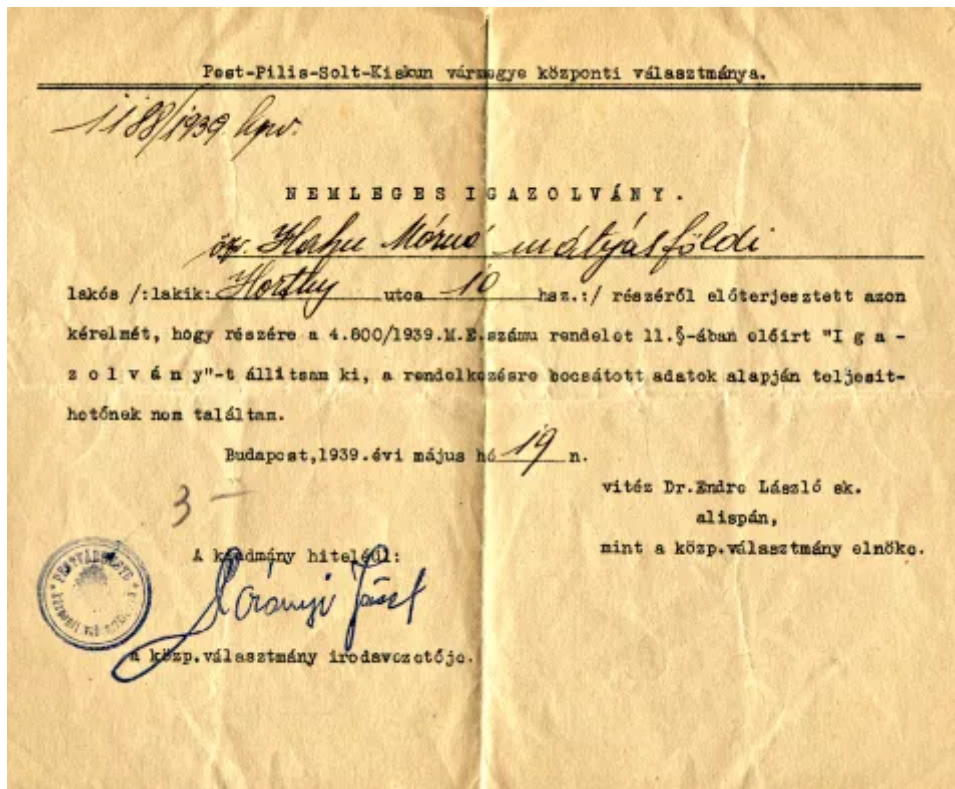 Pest-Pilis-Solt-Kiskun vármegye központi választmánya.
1188/1939. kpv.
NEMLEGES IGAZOLVÁNY.
özv. Hahn Mórné mátyásföldi
lakós /:lakik: Horthy utca 10 hsz.:/ részéről előterjesztett azon
kérelmét, hogy részére a 4.800/1939.M.E.számu rendelet 11.§-ában előirt "I g a -
z o l v á n y"-t állitsam ki, a rendelkezésre bocsátott adatok alapján teljesit-
hetőnek nem találtam.
Budapest,1939.évi május hó 19 n.
3 -
vitéz Dr.Endre László sk.
alispán,
mint a közp.választmány elnöke.
A kiadmány hiteléül:
József
a közp.választmány irodavezetője.